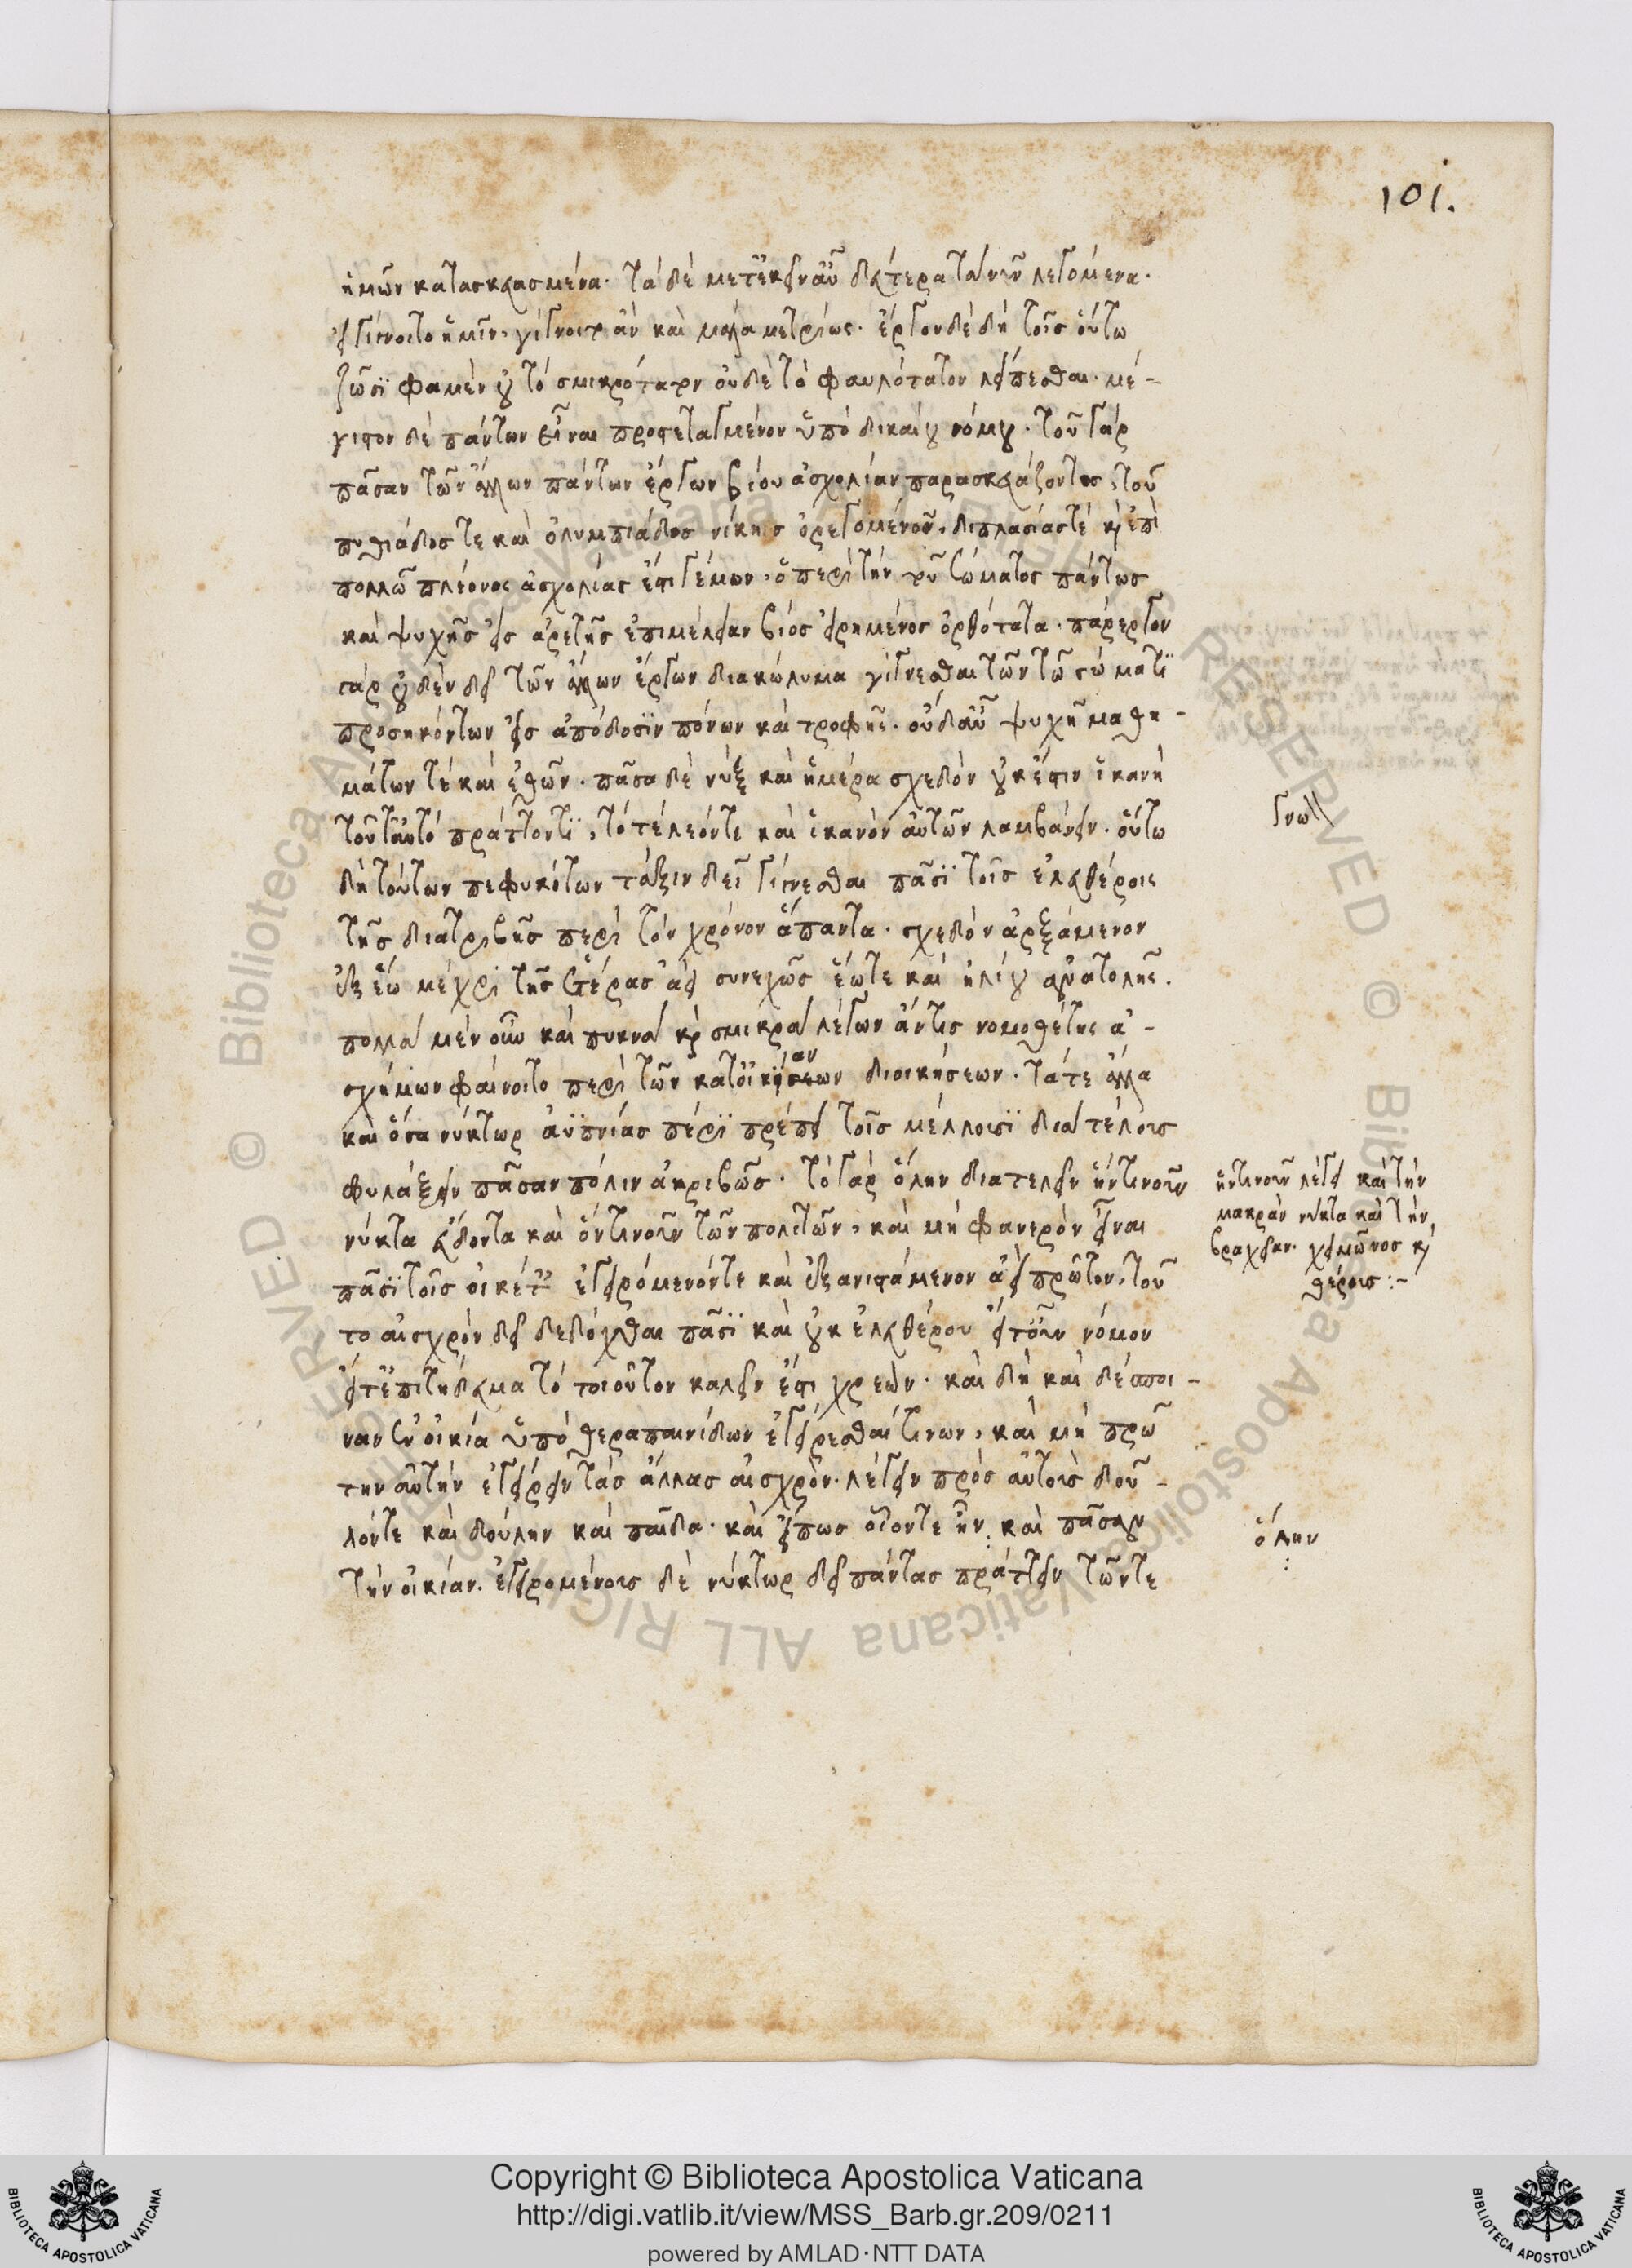 101.
ἡμῶν κατασκευασμένα. τὰ δὲ μετ' ἐκεῖν' αὖ δεύτερα τὰ νῦν λεγόμενα.
εἰ γίγνοιτο ἡμῖν, γίγνοιτ' ἂν καὶ μάλα μετρίως. ἔργον δὲ δὴ τοῖς οὕτω
ζῶσϊ φαμὲν οὐ τὸ σμικρότατον οὐδὲ τὸ φαυλότατον λείπεσθαι. μέ-
γιστον δὲ πάντων εἶναι προστεταγμένον ὑπὸ δικαίου νόμου. τοῦ γὰρ
πᾶσαν τῶν ἄλλων πάντων ἔργων βίου ἀσχολίαν παρασκευάζοντος, τοῦ
πυθιάδος τε καὶ ὀλυμπιάδος νίκης ὀρεγομένου, διπλασίας τὲ καὶ ἐπὶ
πολλῶ πλέονος ἀσχολίας ἐστὶ γέμων, ὁ περὶ τὴν τοῦ σώματος πάντως
καὶ ψυχῆς εἰς ἀρετῆς ἐπιμέλειαν βίος εἰρημένος ὀρθότατα. πάρεργον
γὰρ οὐδὲν δεῖ τῶν ἄλλων ἔργων διακώλυμα γίγνεσθαι τῶν τῶ σώματϊ
προσηκόντων εἰς ἀπόδοσϊν πόνων καὶ τροφῆς. οὐδ' αὖ ψυχῆ μαθη-
μάτων τὲ καὶ ἐθῶν. πᾶσα δὲ νὺξ καὶ ἡμέρα σχεδὸν οὐκ ἔστιν ἱκανὴ
τοῦτ' αὐτὸ πράττοντϊ, τὸ τέλεόν τε καὶ ἱκανὸν αὐτῶν λαμβάνειν. οὕτω
δὴ τούτων πεφυκότων τάξιν δεῖ γίγνεσθαι πᾶσϊ τοῖς ἐλευθέροις
τῆς διατριβῆς περὶ τὸν χρόνον ἅπαντα. σχεδὸν ἀρξάμενον
ἐξ ἕω μέχρϊ τῆς ἑτέρας ἀεὶ συνεχῶς ἕω τε καὶ ἡλίου ἀνατολῆς.
πολλὰ μὲν οὖν καὶ πυκνὰ καὶ σμικρὰ λέγων ἄν τις νομοθέτης ἀ-
σχήμων φαίνοιτο περὶ τῶν κατ' οἰκήσεων διοικήσεων. τά τε ἄλλα
αν
καὶ ὅσα νύκτωρ ἀϋπνίας πέρϊ πρέπει τοῖς μέλλουσϊ διὰ τέλους
φυλάξειν πᾶσαν πόλιν ἀκριβῶς. τὸ γὰρ ὅλην διατελεῖν ἡντινοῦν
νύκτα εὕδοντα καὶ ὁντινοῦν τῶν πολιτῶν, καὶ μὴ φανερὸν εἶναι
πᾶσϊ τοῖς οἰκέταις ἐγειρόμενόν τε καὶ ἐξανιστάμενον ἀεὶ πρῶτον, τοῦ
το αἰσχρὸν δεῖ δεδόχθαι πᾶσϊ καὶ οὐκ ἐλευθέρου εἴτ' οὖν νόμον
εἴτ' ἐπιτήδευμα τὸ τοιοῦτον καλεῖν ἐστι χρεών. καὶ δὴ καὶ δέσποι-
ναν ἐν οἰκία ὑπὸ θεραπαινίδων ἐγείρεσθαί τινων, καὶ μὴ πρώ
την αὐτὴν ἐγείρειν τὰς ἄλλας αἰσχρόν. λέγειν πρὸς αὐτοὺς δοῦ-
λόν τε καὶ δούλην καὶ παῖδα. καὶ εἴπως οἷόν τε ἦν. καὶ πᾶσαν
τὴν οἰκίαν. ἐγειρομένους δὲ νύκτωρ δεῖ πάντας πράττειν τῶν τε
ἡντινοῦν λέγει καὶ τὴν
μακρὰν νύκτα καὶ τὴν
βραχεῖαν. χειμῶνος καὶ
θέρους :-
ὅλην
Copyright © Biblioteca Apostolica Vaticana
http://digi.vatlib.it/view/MSS_Barb.gr.209/0211
powered by AMLAD·NTT DATA
BIBLIOTECA APOSTOLICA VATICANA
BIBLIOTECA APOSTOLICA VATICANA